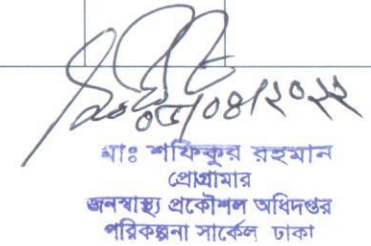 ০৫/০৪/২০২২
মোঃ শফিকুর রহমান
প্রোগ্রামার
জনস্বাস্থ্য প্রকৌশল অধিদপ্তর
পরিকল্পনা সার্কেল ঢাকা